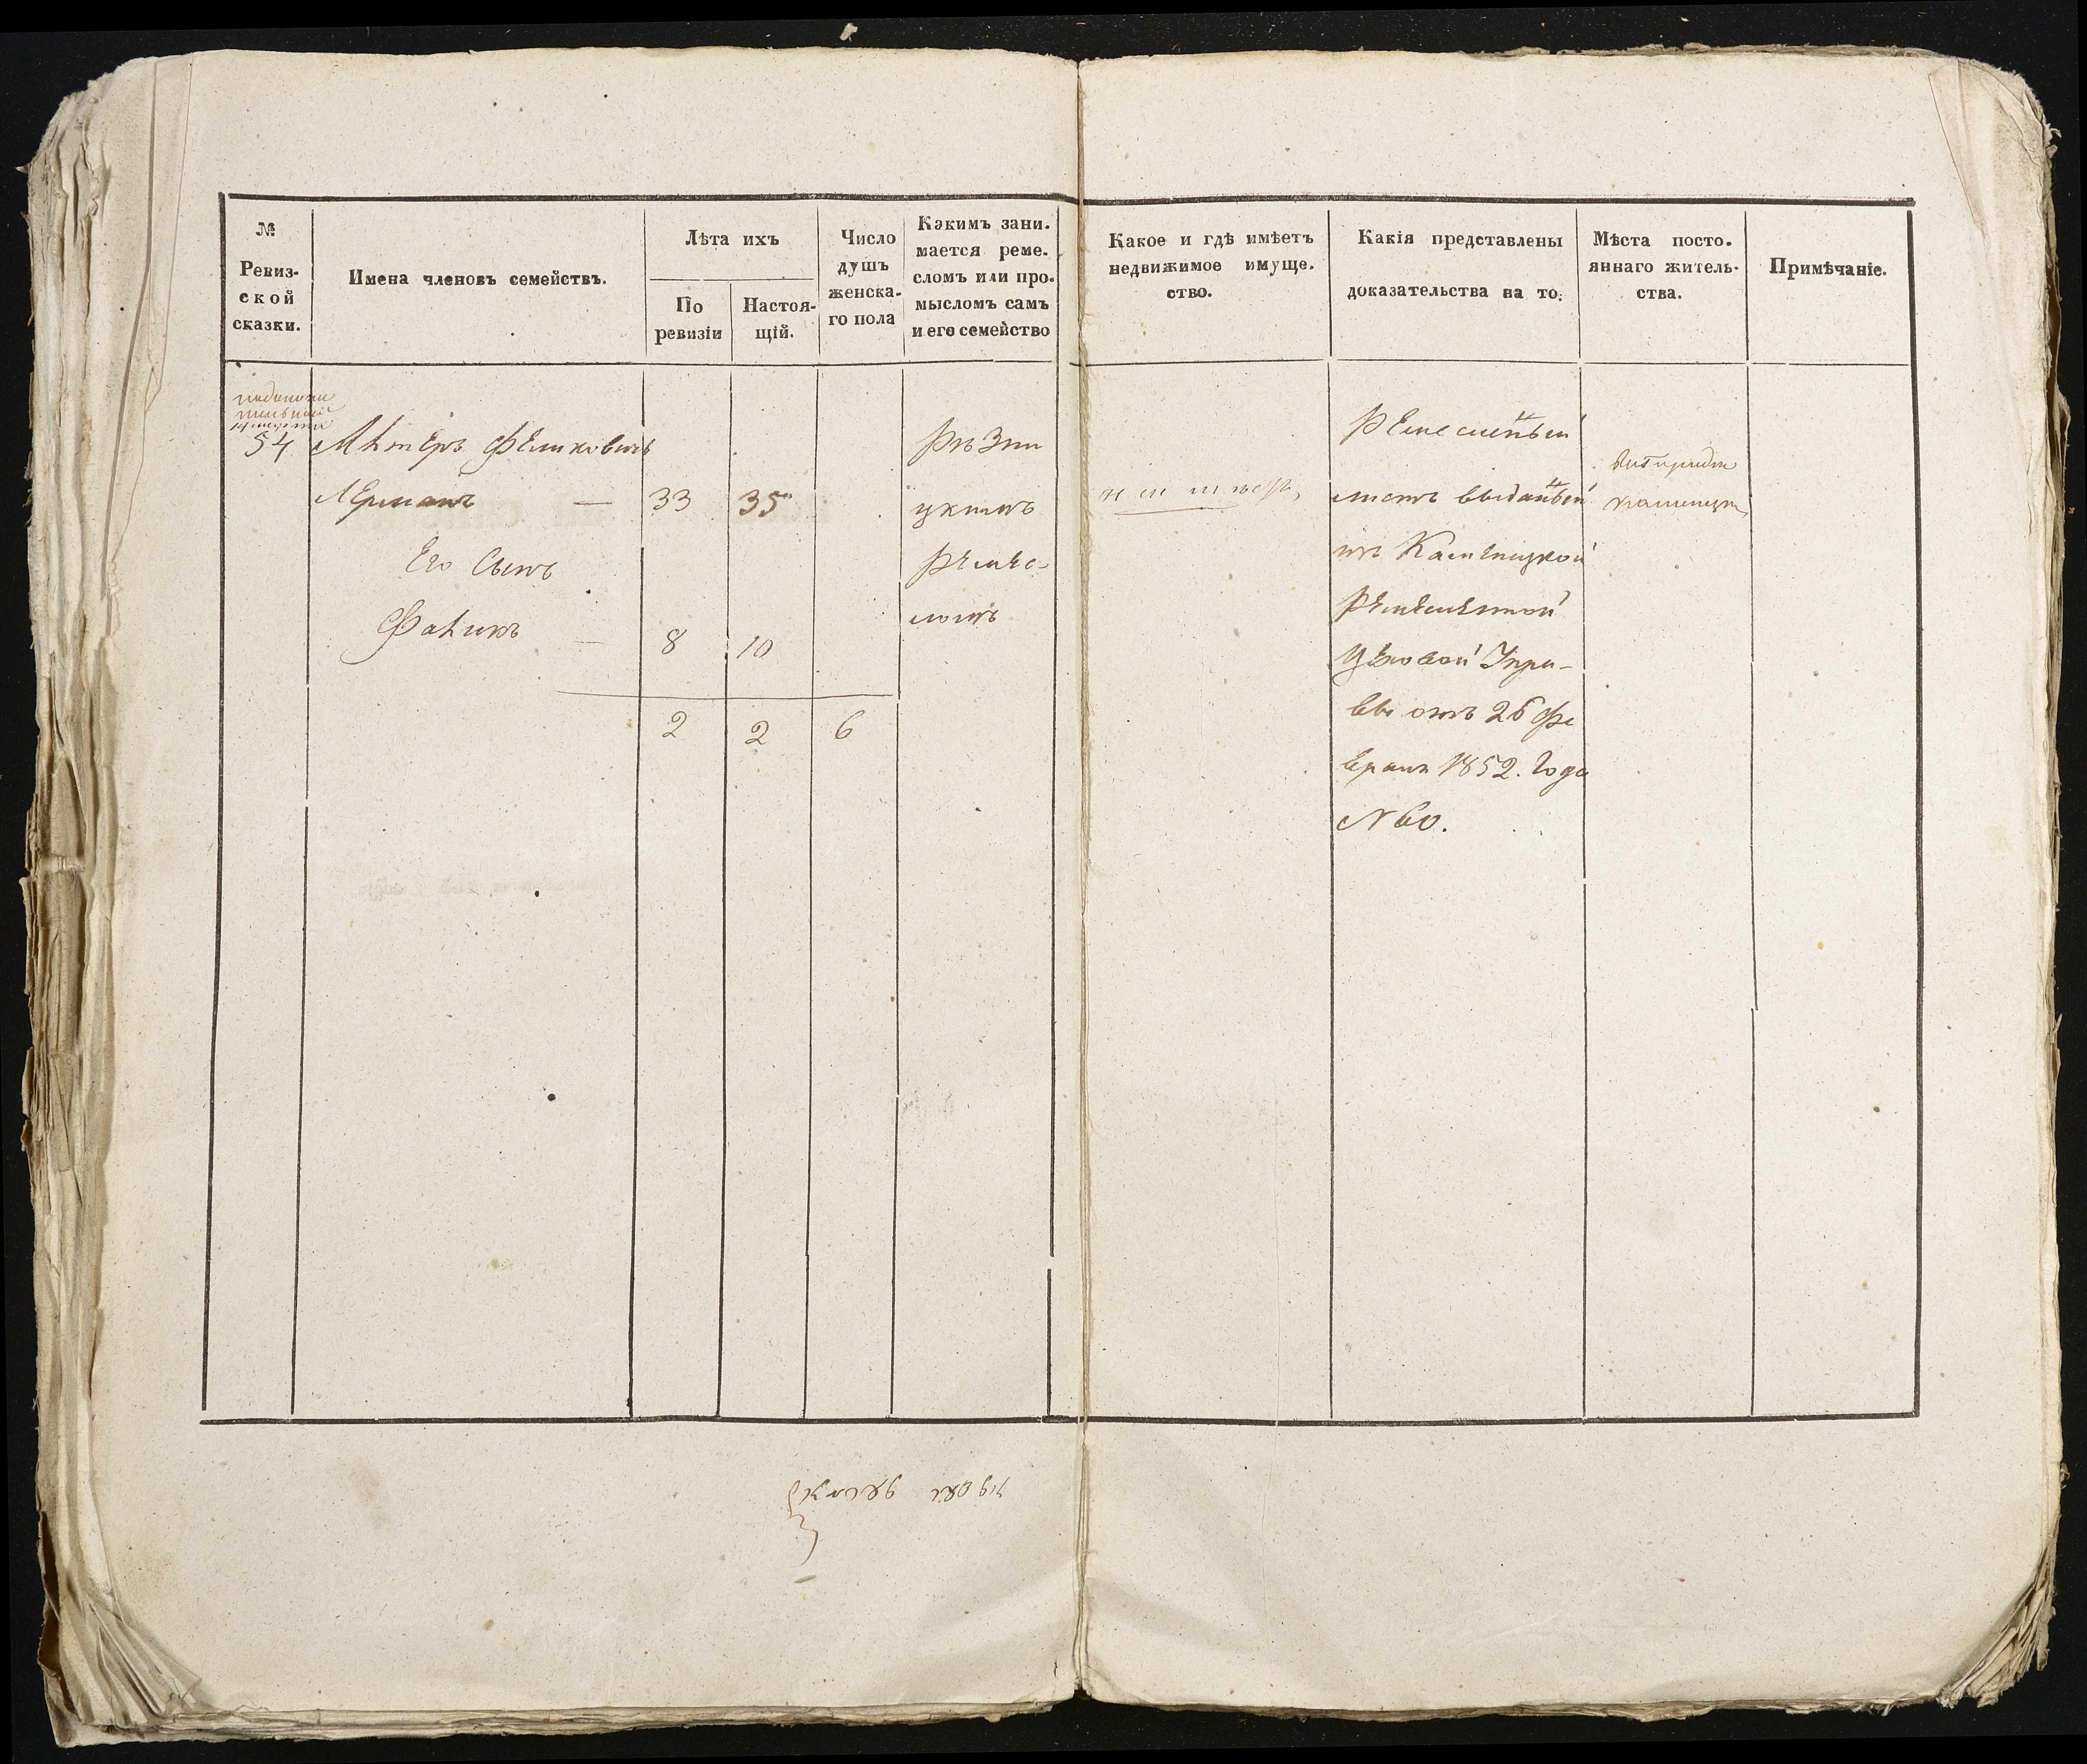 №
Ревиз-
ской
сказки.
Имена членовъ семействъ.
Лѣта ихъ
По
ревизіи
Настоя-
щій.
Число
душъ
женска-
го пола
Какимъ зани-
мается реме-
сломъ или про-
мысломъ самъ
и его семейство
Какое и гдѣ имѣетъ
недвижимое имуще-
ство.
Какія представлены
доказательства на то.
Мѣста посто-
яннаго житель-
ства.
Примѣчаніе.
54
Лерманъ — 33 35
Его Сынъ
— 8 10
2 2 6
Рѣзни
цкимъ
Ремес-
ломъ
не имѣетъ
Ремесленый
листъ выданый
изъ Каменецкой
Ремесленной
Цеховой Упра-
вы отъ 26 Фе
враля 1852. Года
№ 60.